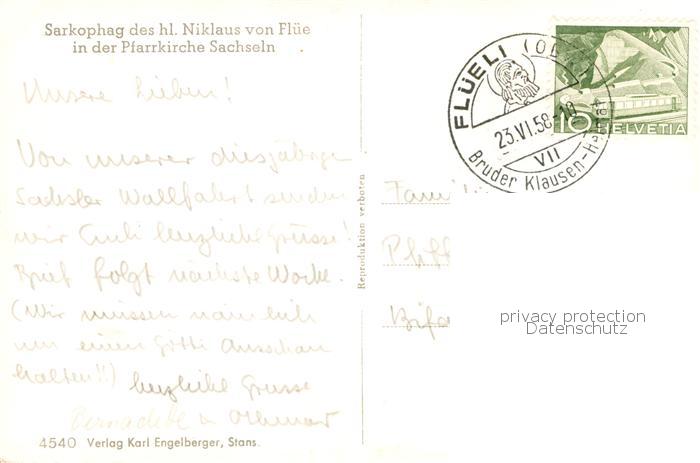 Sarkophag des hl. Niklaus von Flüe
in der Pfarrkirche Sachseln
Unsere Lieben!
Von unserer diesjährigen
Sachsler Wallfahrt senden
wir Euch herzliche Grüsse!
Brief folgt nächste Woche.
(Wir müssen nämlich
um einen Götti Ausschau
halten!!) herzliche Grüsse
Bernadette & Othmar
4540 Verlag Karl Engelberger, Stans.
Reproduktion verboten
FLÜELI (OBW.)
23.VI.58-18
VII
Bruder Klausen-Heimat
10 HELVETIA
Famil
Pfaff
privacy protection
Datenschutz